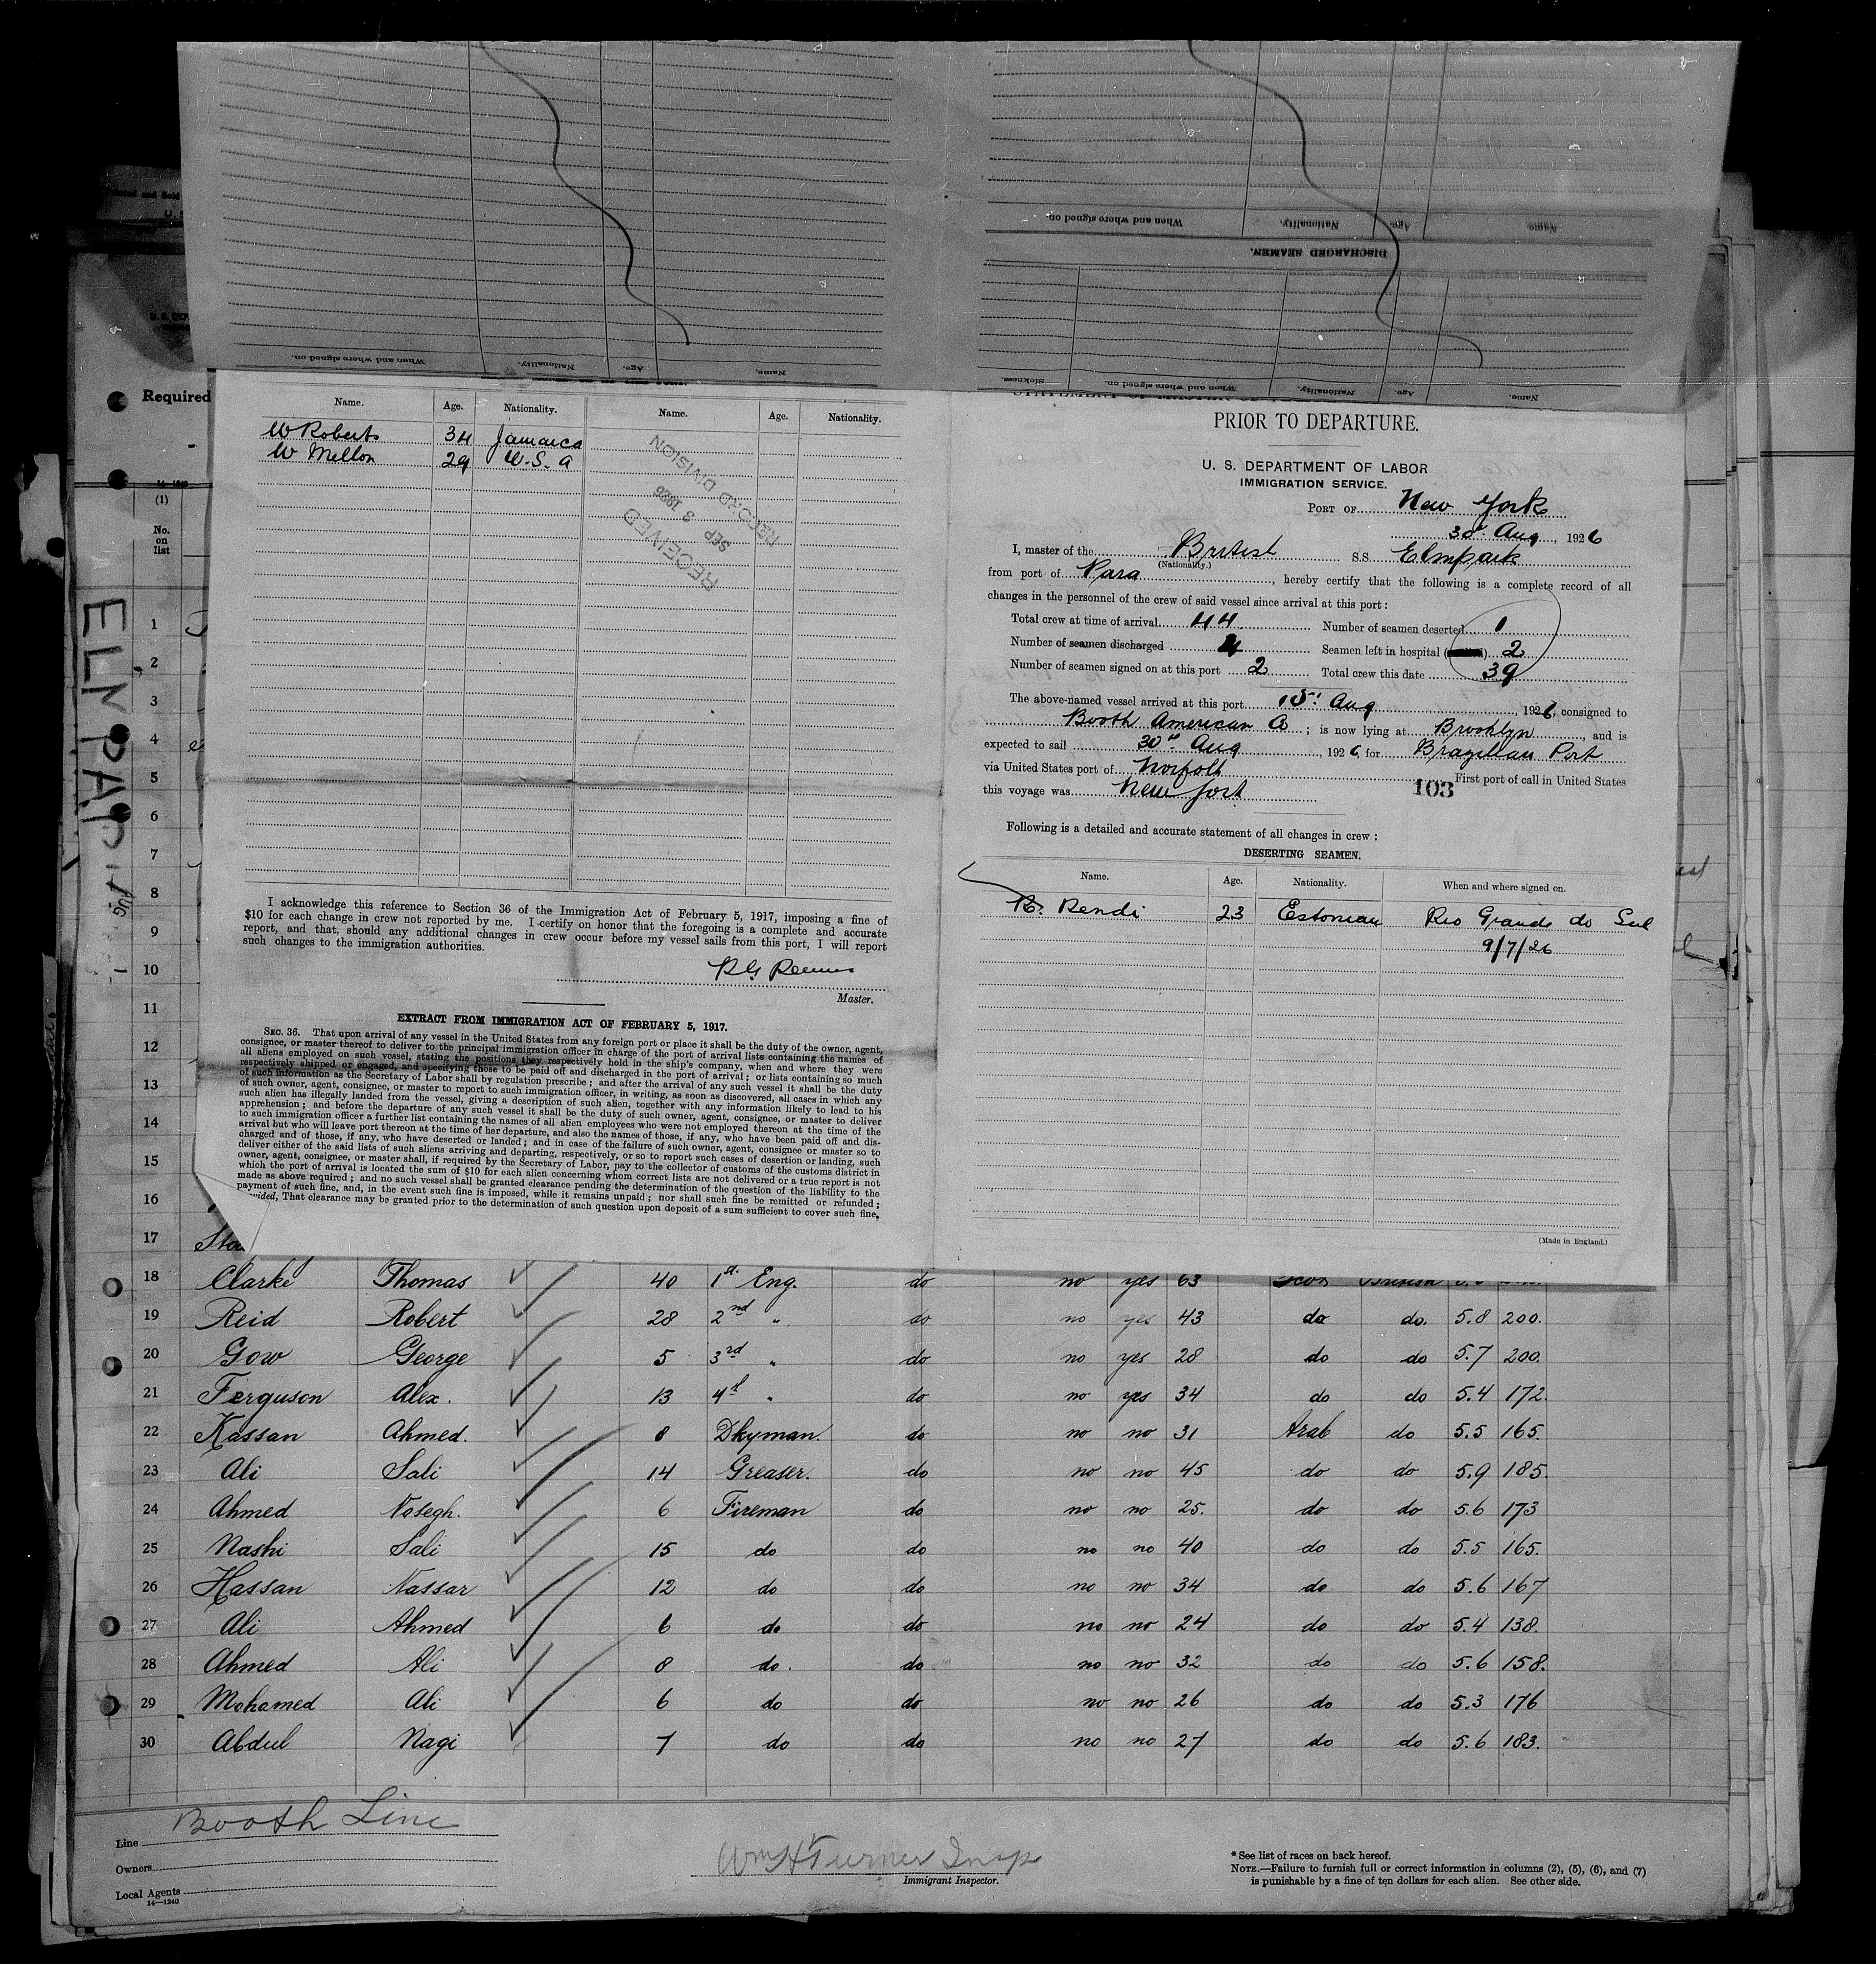 When and where signed on.
Nationality.
Age.
Name.
DISCHARGED SEAMEN.
When and where signed on.
Nationality.
Age.
Name.
Sickness.
When and where signed on.
Nationality.
Age.
Name.
Required
14-1240
(1)
No. on list
Name. Age. Nationality. Name. Age. Nationality.
W Roberts 34 Jamaica
W Mellon 29 U.S.A
RECEIVED
SEP 3 1926
RECORD DIVISION
I acknowledge this reference to Section 36 of the Immigration Act of February 5, 1917, imposing a fine of
$10 for each change in crew not reported by me. I certify on honor that the foregoing is a complete and accurate
report, and that, should any additional changes in crew occur before my vessel sails from this port, I will report
such changes to the immigration authorities.
Master.
EXTRACT FROM IMMIGRATION ACT OF FEBRUARY 5, 1917.
SEC. 36. That upon arrival of any vessel in the United States from any foreign port or place it shall be the duty of the owner, agent,
consignee, or master thereof to deliver to the principal immigration officer in charge of the port of arrival lists containing the names of
all aliens employed on such vessel, stating the positions they respectively hold in the ship's company, when and where they were
respectively shipped or engaged, and specifying those to be paid off and discharged in the port of arrival; or lists containing so much
of such information as the Secretary of Labor shall by regulation prescribe; and after the arrival of any such vessel it shall be the duty
of such owner, agent, consignee, or master to report to such immigration officer, in writing, as soon as discovered, all cases in which any
such alien has illegally landed from the vessel, giving a description of such alien, together with any information likely to lead to his
apprehension; and before the departure of any such vessel it shall be the duty of such owner, agent, consignee, or master to deliver
to such immigration officer a further list containing the names of all alien employees who were not employed thereon at the time of the
arrival but who will leave port thereon at the time of her departure, and also the names of those, if any, who have been paid off and dis-
charged and of those, if any, who have deserted or landed; and in case of the failure of such owner, agent, consignee or master so to
deliver either of the said lists of such aliens arriving and departing, respectively, or so to report such cases of desertion or landing, such
owner, agent, consignee, or master shall, if required by the Secretary of Labor, pay to the collector of customs of the customs district in
which the port of arrival is located the sum of $10 for each alien concerning whom correct lists are not delivered or a true report is not
made as above required; and no such vessel shall be granted clearance pending the determination of the question of the liability to the
payment of such fine, and, in the event such fine is imposed, while it remains unpaid; nor shall such fine be remitted or refunded;
That clearance may be granted prior to the determination of such question upon deposit of a sum sufficient to cover such fine,
PRIOR TO DEPARTURE.
U. S. DEPARTMENT OF LABOR
IMMIGRATION SERVICE.
PORT OF New York
30th Aug, 1926
I, master of the British S.S. Elmpark
(Nationality.)
from port of Para, hereby certify that the following is a complete record of all
changes in the personnel of the crew of said vessel since arrival at this port:
Total crew at time of arrival 44 Number of seamen deserted 1
Number of seamen discharged 4 Seamen left in hospital 2
Number of seamen signed on at this port 2 Total crew this date 39
The above-named vessel arrived at this port 15th Aug, 1926, consigned to
Booth American Co; is now lying at Brooklyn, and is
expected to sail 30th Aug, 1926, for Brazilian Port
via United States port of Norfolk First port of call in United States
this voyage was New York
103
Following is a detailed and accurate statement of all changes in crew:
DESERTING SEAMEN.
Name. Age. Nationality. When and where signed on.
R. Rendi 23 Estonian Rio Grande do Sul
9/7/26
(Made in England.)
ELMPARK
AUG
1
2
3
4
5
6
7
8
9
10
11
12
13
14
15
16
17
18 Clarke Thomas 40 1st Eng. do no yes 63 Scot British
19 Reid Robert 28 2nd " do no yes 43 do do. 5.8 200.
20 Gow George 5 3rd " do no yes 28 do do 5.7 200.
21 Ferguson Alex. 13 4th " do no yes 34 do do 5.4 172.
22 Kassan Ahmed. 8 Dkyman. do no no 31 Arab do 5.5 165.
23 Ali Sali 14 Greaser. do no no 45 do do 5.9 185.
24 Ahmed Nasegh. 6 Fireman do no no 25. do do 5.6 173
25 Nashi Sali 15 do do no no 40 do do 5.5 165.
26 Hassan Nassar 12 do do no no 34 do do 5.6 167
27 Ali Ahmed 6 do do no no 24 do do 5.4 138.
28 Ahmed Ali 8 do. do no no 32 do do 5.6 158.
29 Mohamed Ali 6 do do no no 26 do do 5.3 176
30 Abdul Nagi 7 do do no no 27 do do 5.6 183.
Line Booth Line
Owners
Local Agents
14—1240
Wm H Turner Insp
Immigrant Inspector.
* See list of races on back hereof.
NOTE.—Failure to furnish full or correct information in columns (2), (5), (6), and (7)
is punishable by a fine of ten dollars for each alien. See other side.